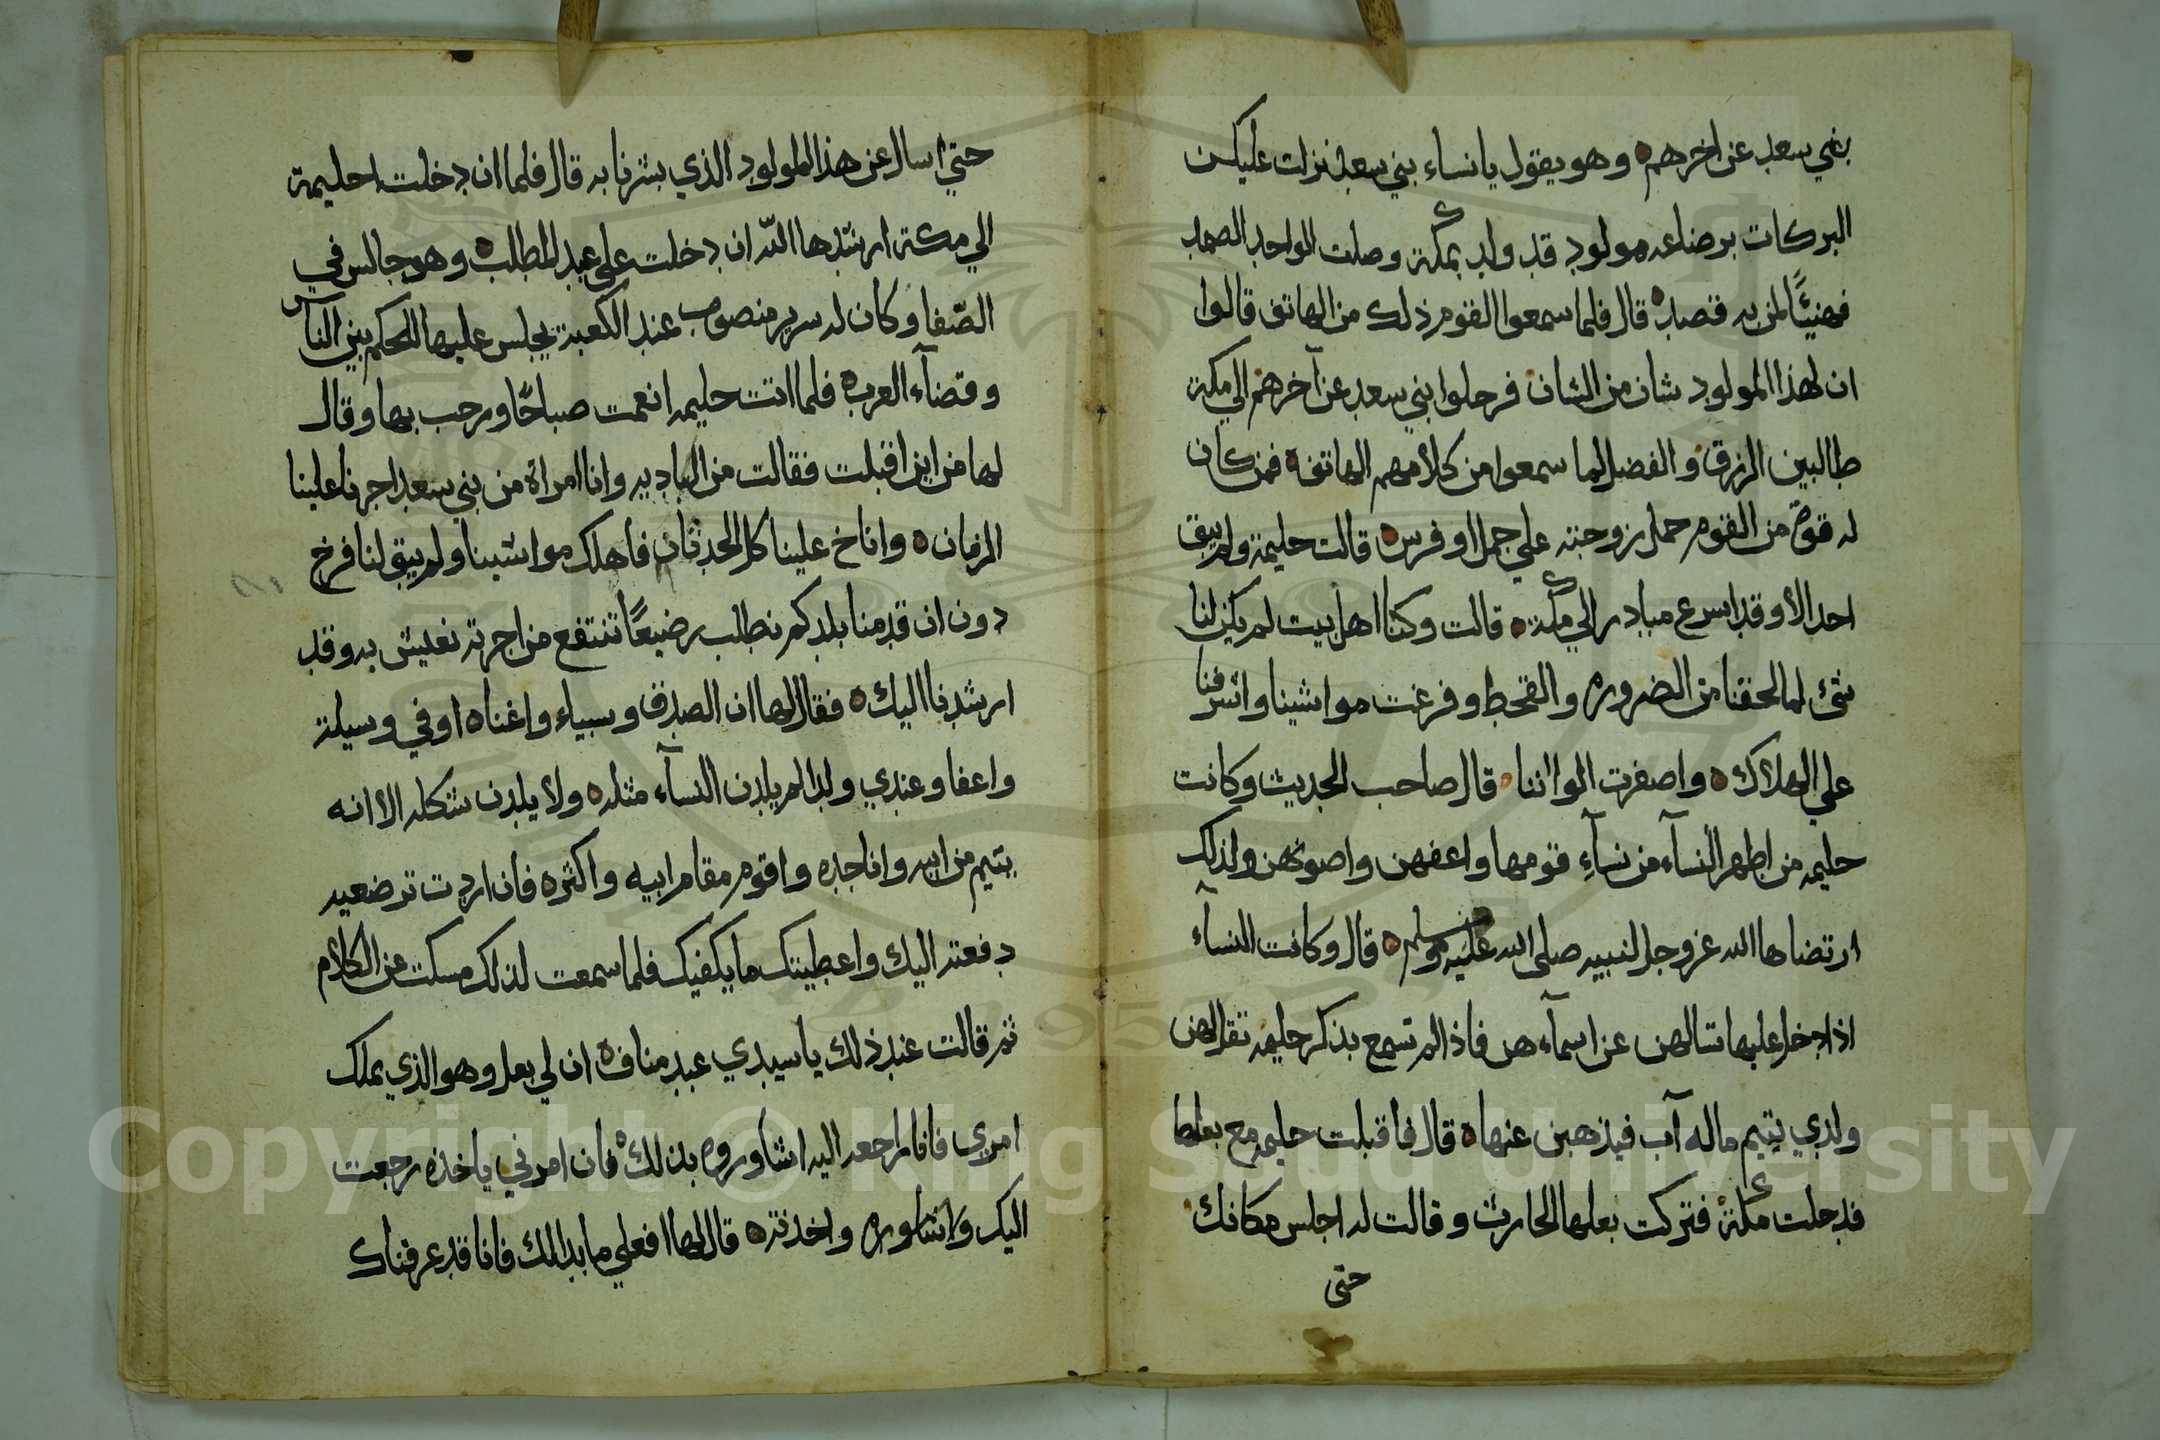 بني سعد عن اخرهم ه وهو يقول يا نساء بني سعد نزلت عليكن
البركات برضاعه مولود قد ولد بمكة وصلت الواحد الصمد
فهنيئًا لمن به قصد ه قال فلما سمعوا القوم ذلك من الهاتف قالوا
ان لهذا المولود شان من الشان فرحلوا بني سعد عن آخرهم الي مكة
طالبين الرزق والفضل لما سمعوا من كلامهم الهاتف ه فمن كان
له قوة من القوم حمل زوجته علي جمل او فرس ه قالت حليمة ولم يبق
احد الا وقد اسرع مبادر الي مكة ه قالت وكنا اهل بيت لم يكن لنا
شئ لما لحقنا من الضروره والقحط وفرغت مواشينا واشرفنا
علي الهلاك ه واصفرت الواننا قال صاحب الحديث وكانت
حليمه من اطهر النسآء من نسآءِ قومها واعفهن واصونهن ولذلك
ارتضاها الله عز وجل لنبيه صلى الله عليه وسلم ه قال وكانت النسآء
اذا دخل عليها تسالهن عن اسمآء هن فاذا لم تسمع بذكر حليمه تقل لهن
ولدي يتيم ماله آب فيذهبن عنها ه قال فاقبلت حليمه مع بعلها
فدخلت مكة فتركت بعلها الحارث وقالت له اجلس مكانك
حتى
حتي اسال عن هذا المولود الذي بشرنا به قال فلما ان دخلت احليمة
الي مكة ارشدها الله ان دخلت علي عبد المطلب ه وهو جالس في
الصّفا وكان له سرير منصوب عند الكعبة يجلس عليها للحكم بين الناس
وقضآء العرب ه فلما اتت حليمه انعمت صباحًا ورحب بها وقال
لها من اين اقبلت فقالت من الباديه وانا امراة من بني سعد اجرنا علينا
الزمان ه واناخ علينا كل الحدثان فاهلك مواشينا ولم يبق لنا فرخ
دون ان قدمنا بلدكم نطلب رضيعًا تنتفع من اجرته نعيش به وقد
ارشدنا اليك ه فقال لها ان الصدق وسياء واغناه اوفي وسيلة
واعفا وعندي ولدا لم يلدن النسآء مثله ه ولا يلدن شكله الا انه
يتيم من ابيه وانا جده واقوم مقام ابيه واكثره فان اردت ترضعيه
دفعته اليك واعطيتك ما يكفيك فلما سمعت لذلك مسكت عن الكلام
ثم قالت عند ذلك يا سيدي عبد مناف ه ان لي بعل وهو الذي يملك
امري فانا راجعه اليه اشاوروه بذلك ه فان امرني ياخذه رجعت
اليك ولاشاوره واخذته ه قال لها افعلي ما بدا لك فانا قد عرفناك
Copyright © King Saud University